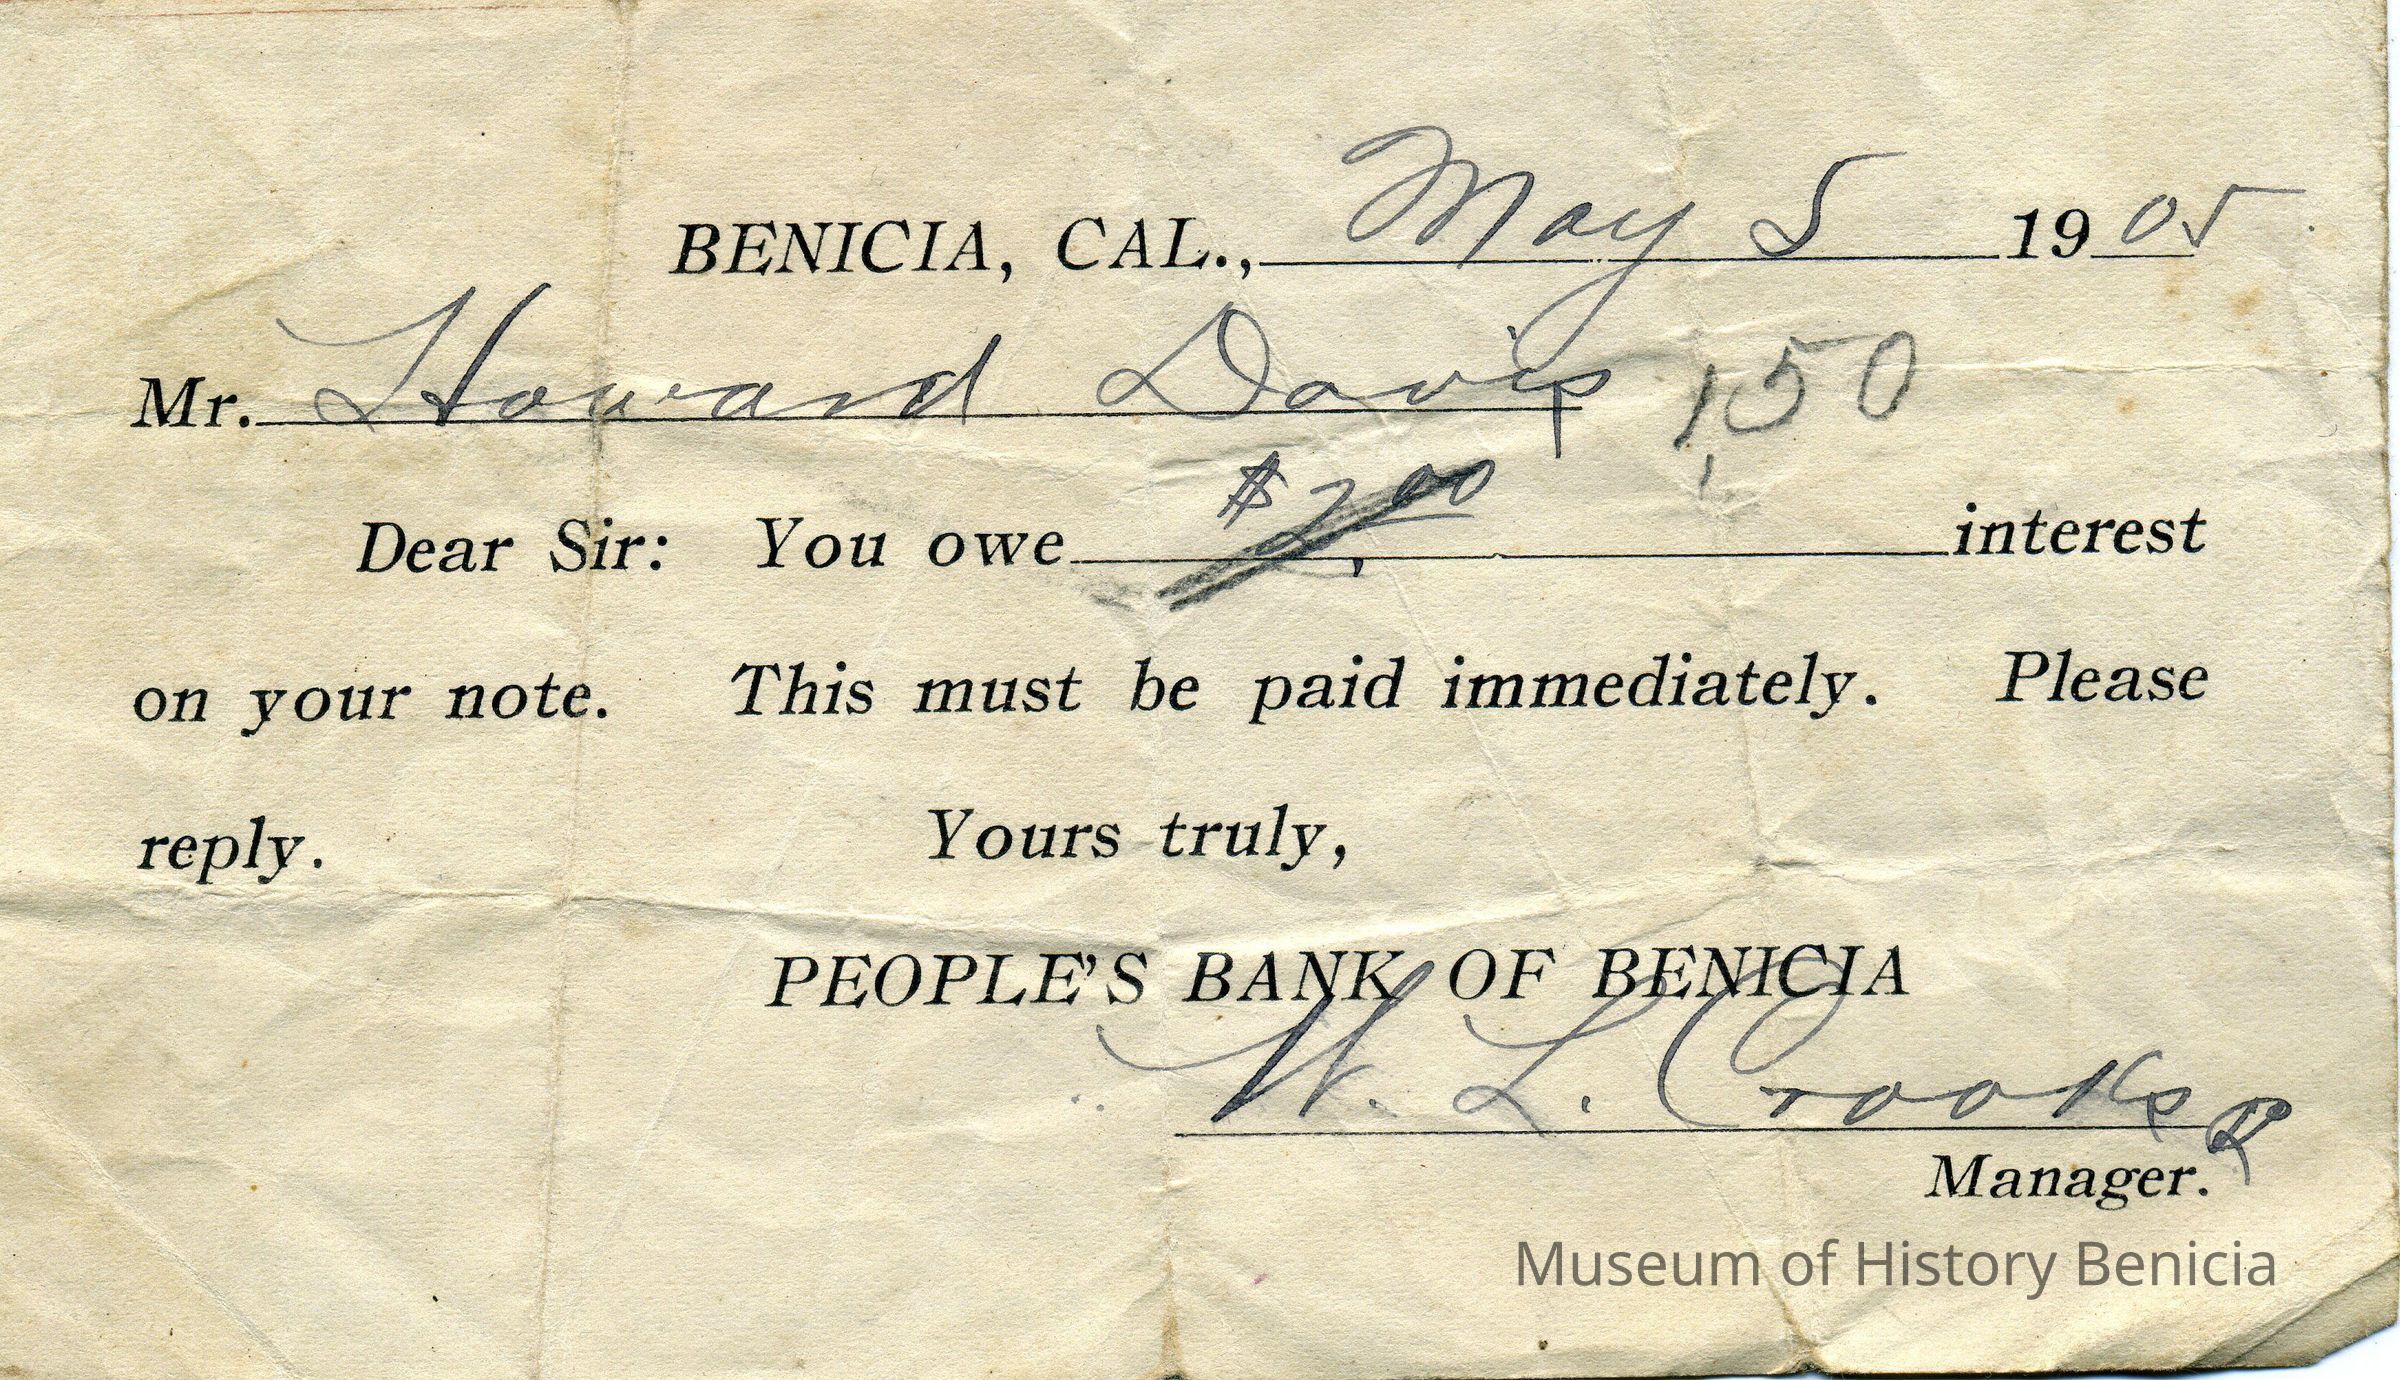 BENICIA, CAL., May 5 1905
Mr. Howard Davis 1.50
Dear Sir: You owe $2.00 interest
on your note. This must be paid immediately. Please
reply. Yours truly,
PEOPLE'S BANK OF BENICIA
W. L. Crooks
Manager.
Museum of History Benicia